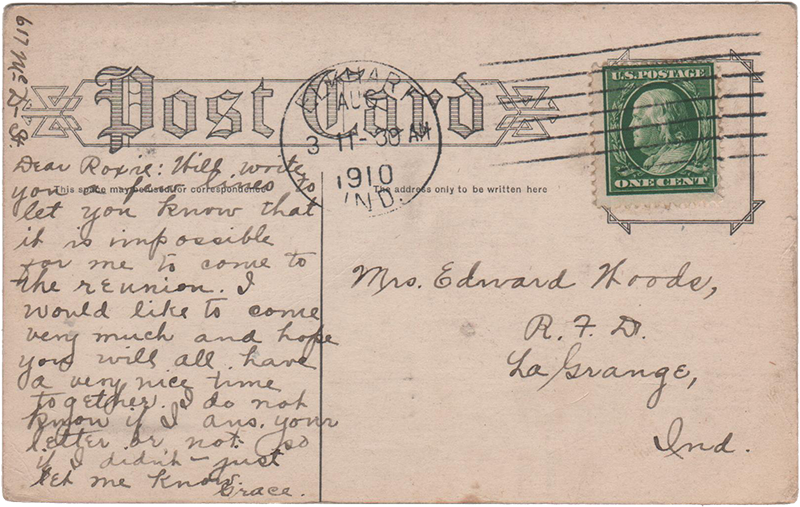 617 Mc D— St.
Post Card
ELKHART
AUG
3 11-30 AM
1910
IND.
U.S. POSTAGE
ONE CENT
This space may be used for correspondence
The address only to be written here
Dear Roxie: Will write
you a few lines
let you know that
it is impossible
for me to come to
the reunion. I
would like to come
very much and hope
you will all have
a very nice time
together. I do not
know if I ans. your
letter or not so
if I didn't just
let me know.
Grace.
Mrs. Edward Woods,
R. F. D.
La Grange,
Ind.